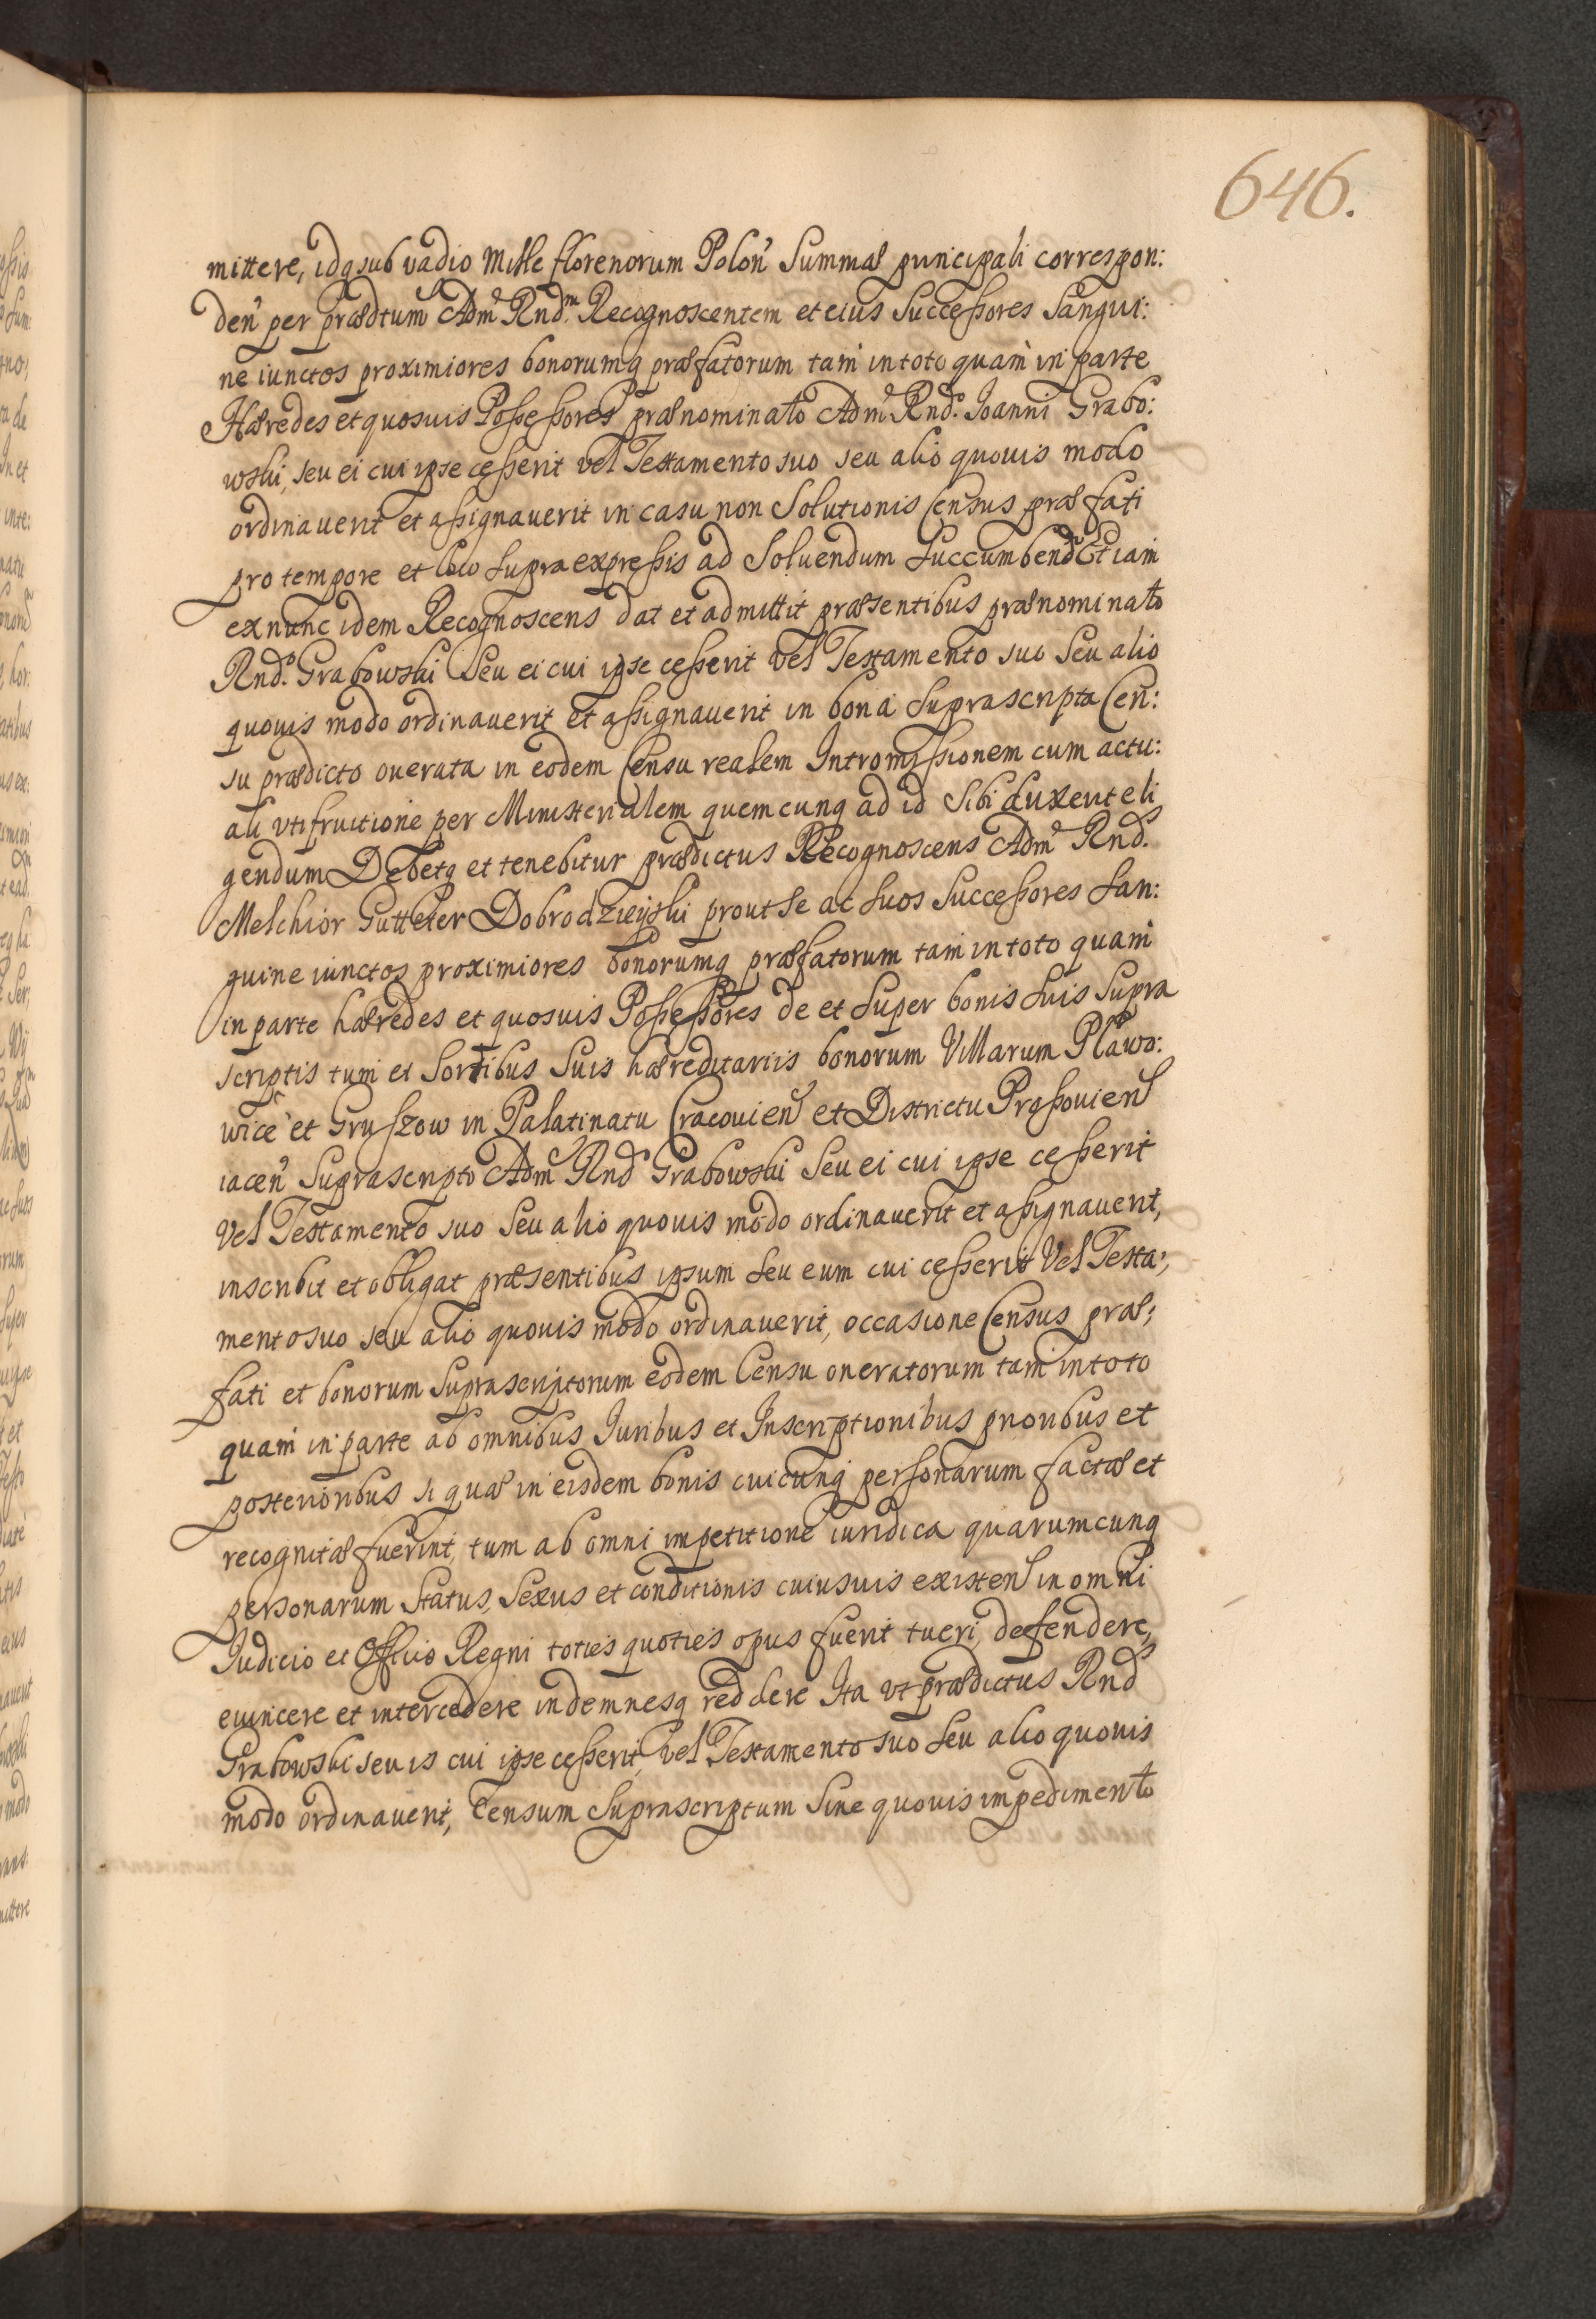 646.
mittere, idq sub vadio Mille florenorum Polon̄ Summæ principali correspon:
den̄ per prædtum Adm Rndm Recognoscentem et eius Successores Sangui:
ne iunctos proximiores bonorumq præfatorum tam in toto quam in parte
Hæredes et quosuis Possessores prænominato Adm Rndo Ioanni Grabo:
wski, seu ei cui ipse cesserit vel Testamento suo seu alio quouis modo
ordinauerit et assignauerit in casu non Solutionis Census præfati
pro tempore et loco supra expressis ad Soluendum succumbend Et iam
ex nunc idem Recognoscens dat et admittit præsentibus prænominato
Rndo Grabowski Seu ei cui ipse cesserit vel Testamento suo Seu alio
quouis modo ordinauerit et assignauerit in bona suprascripta Cen:
su prædicto onerata in eodem Censu realem Intromissionem cum actu:
ali vtifruitione per Ministerialem quemcunq ad id Sibi duxerit eli
gendum Debetq et tenebitur prædictus Recognoscens Adm Rnds
Melchior Gutteter Dobrodzieyski prout se ac suos Successores san:
guine iunctos proximiores bonorumq præfatorum tam in toto quam
in parte hæredes et quosuis Possessores de et super bonis suis supra
scriptis tum et Sortibus Suis hæreditariis bonorum Villarum Pławo:
wice et Gruszow in Palatinatu Cracouien et Districtu Prossouien
iacen̄ Suprascripto Adm Rnd Grabowski Seu ei cui ipse cesserit
Vel Testamento suo Seu alio quouis modo ordinauerit et assignauerit,
inscribit et obligat præsentibus ipsum seu eum cui cesserit Vel Testa:
mento suo seu alio quouis modo ordinauerit, occasione Census præ:
fati et bonorum Suprascriptorum eodem Censu oneratorum tam in toto
quam in parte ab omnibus Iuribus et Inscriptionibus prioribus et
posterioribus si quæ in eisdem bonis cuicunq personarum factæ et
recognitæ fuerint, tum ab omni impetitione iuridica quarumcunq
personarum Status, Sexus et conditionis cuiusuis existen in omni
Iudicio et Officio Regni toties quoties opus fuerit tueri, defendere,
euincere et intercedere indemnesq reddere Ita vt prædictus Rnds
Grabowski seu is cui ipse cesserit, vel Testamento suo seu alio quouis
modo ordinauerit, Censum Suprascriptum Sine quouis impedimento